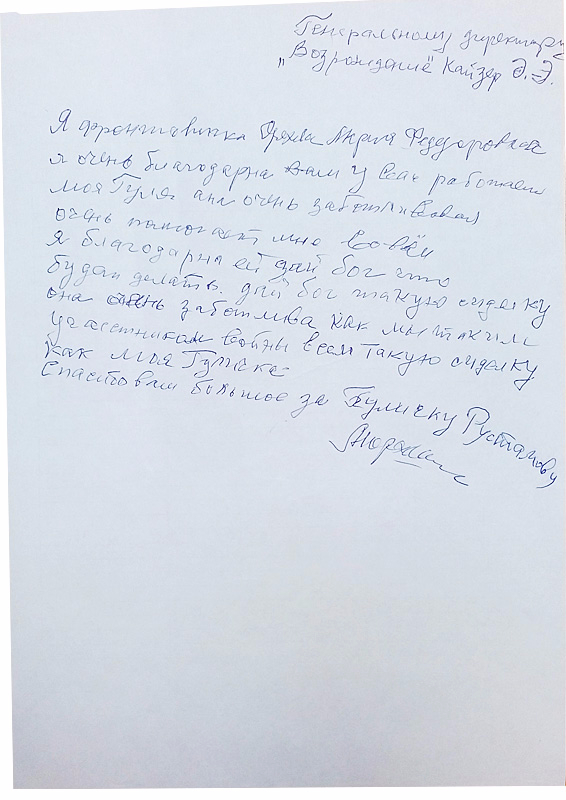 Генеральному директору
"Возрождение" Кайзер Э.Э.
Я фронтовичка Мария Федоровна
я очень благодарна вам у вас работает
моя Гуля она очень заботливая
очень помогает мне во всём
я благодарна ей дай бог что
будет делать. дай бог такую сиделку
она очень заботлива как мы таким
участникам войны всем такую сиделку
как моя Гулечка
Спасибо вам большое за Гуличку Рустамову